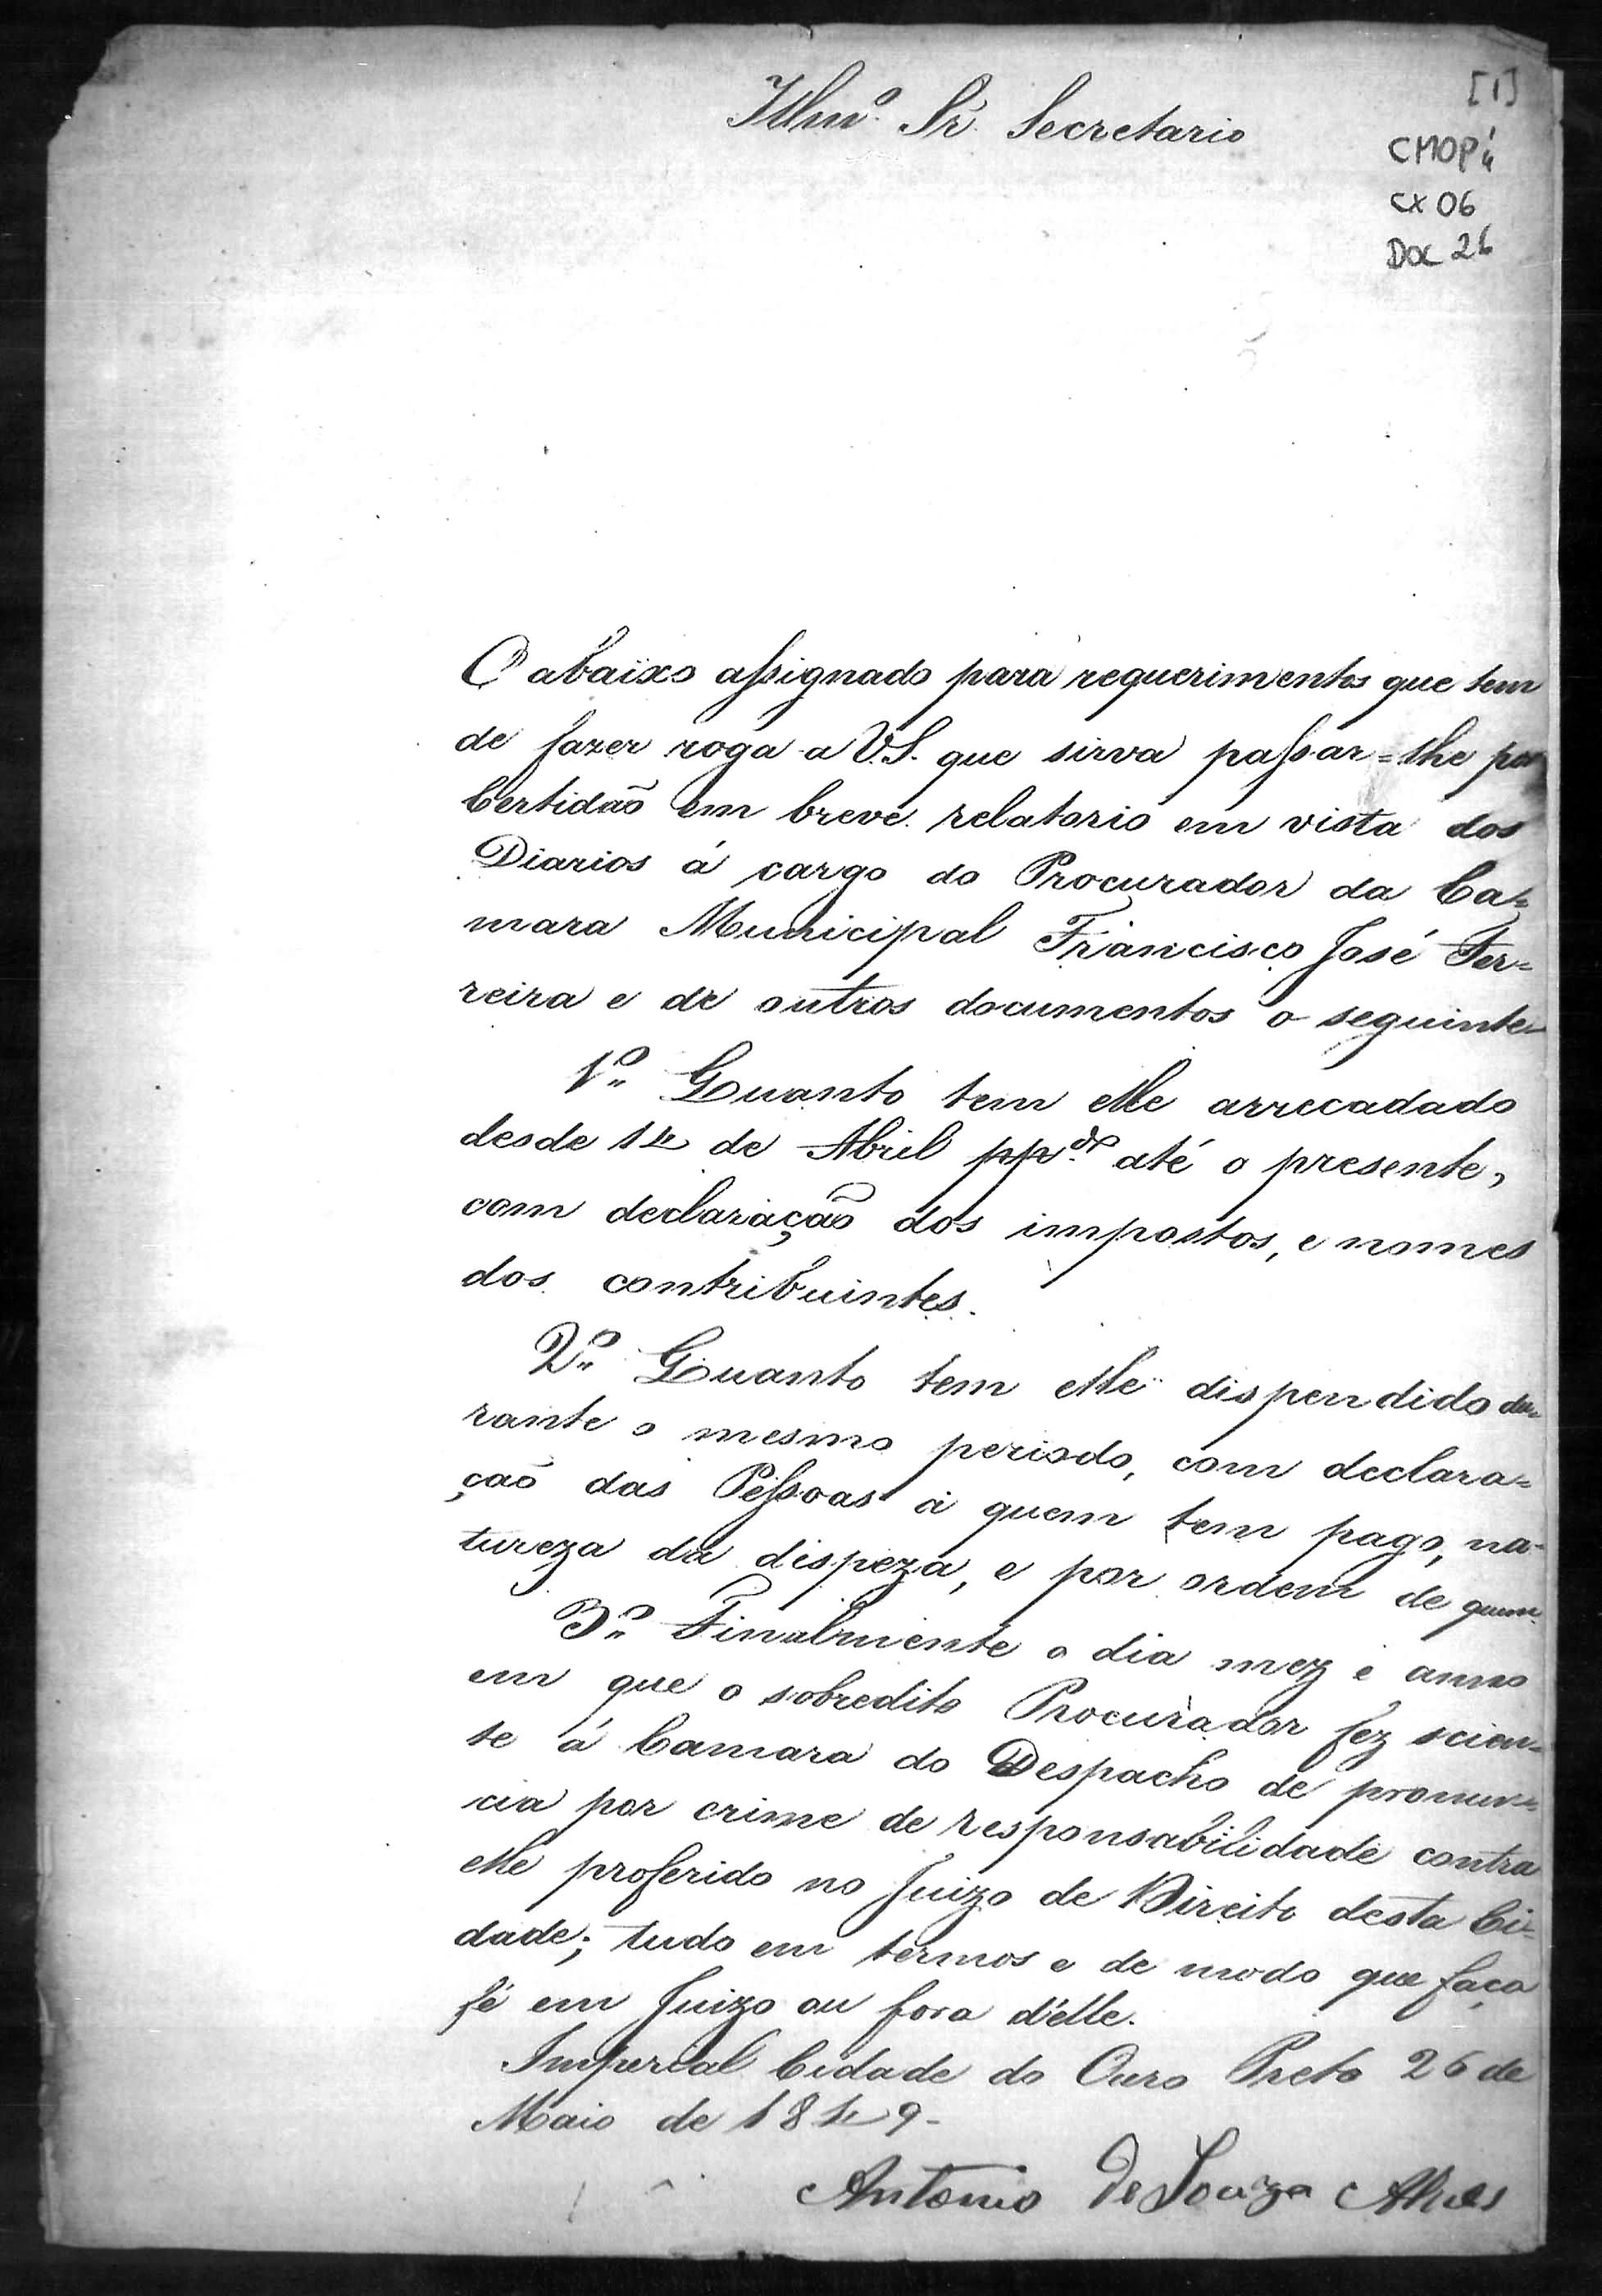 [1]
Illmo. Sr. Secretario
CMOP 4
CX 06
Doc 26
O abaixo assignado para requerimentos que tem
de fazer roga a V.S. que sirva passar=lhe por
Certidão em breve relatorio em vista dos
Diarios á cargo do Procurador da Ca=
mara Municipal Francisco José Fer=
reira e de outros documentos o seguinte
1º Quanto tem elle arrecadado
desde 14 de Abril ppdo. até o presente,
com declaração dos impostos, e nomes
dos contribuintes.
2º Quanto tem elle dispendido du=
rante o mesmo periodo, com declara=
ção das Pessoas á quem tem pago, na=
tureza da dispeza, e por ordem de quem.
3º Finalmente o dia mez e anno
em que o sobredito Procurador fez scien=
te á Camara do Despacho de pronun=
cia por crime de responsabilidade contra
elle proferido no Juizo de Direito desta Ci=
dade; tudo em termos e de modo que faça
fé em Juizo ou fora d'elle.
Imperial Cidade do Ouro Preto 26 de
Maio de 1849-
Antonio de Souza Alves